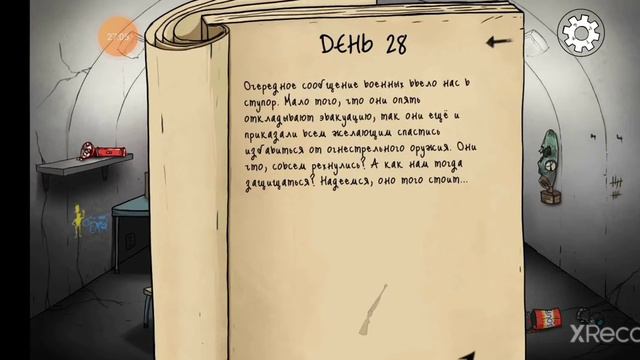 27:05
DЕНЬ 28
Очередное сообщение военных ввело нас в
ступор. Мало того, что они опять
откладывают эвакуацию, так они ещё и
приказали всем желающим спастись
избавиться от огнестрельного оружия. Они
что, совсем рехнулись? А как нам тогда
защищаться? Надеемся, оно того стоит...
XReco